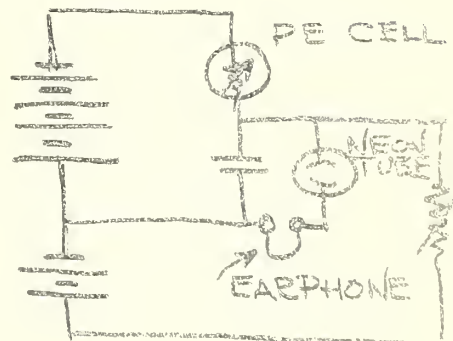 PE CELL
NEON
TUBE
EARPHONE